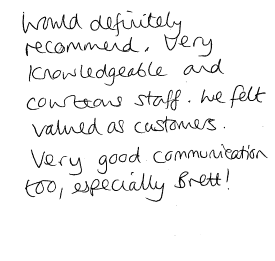 Would definitely
recommend. Very
knowledgeable and
courteous staff. We felt
valued as customers.
Very good communication
too, especially Brett!